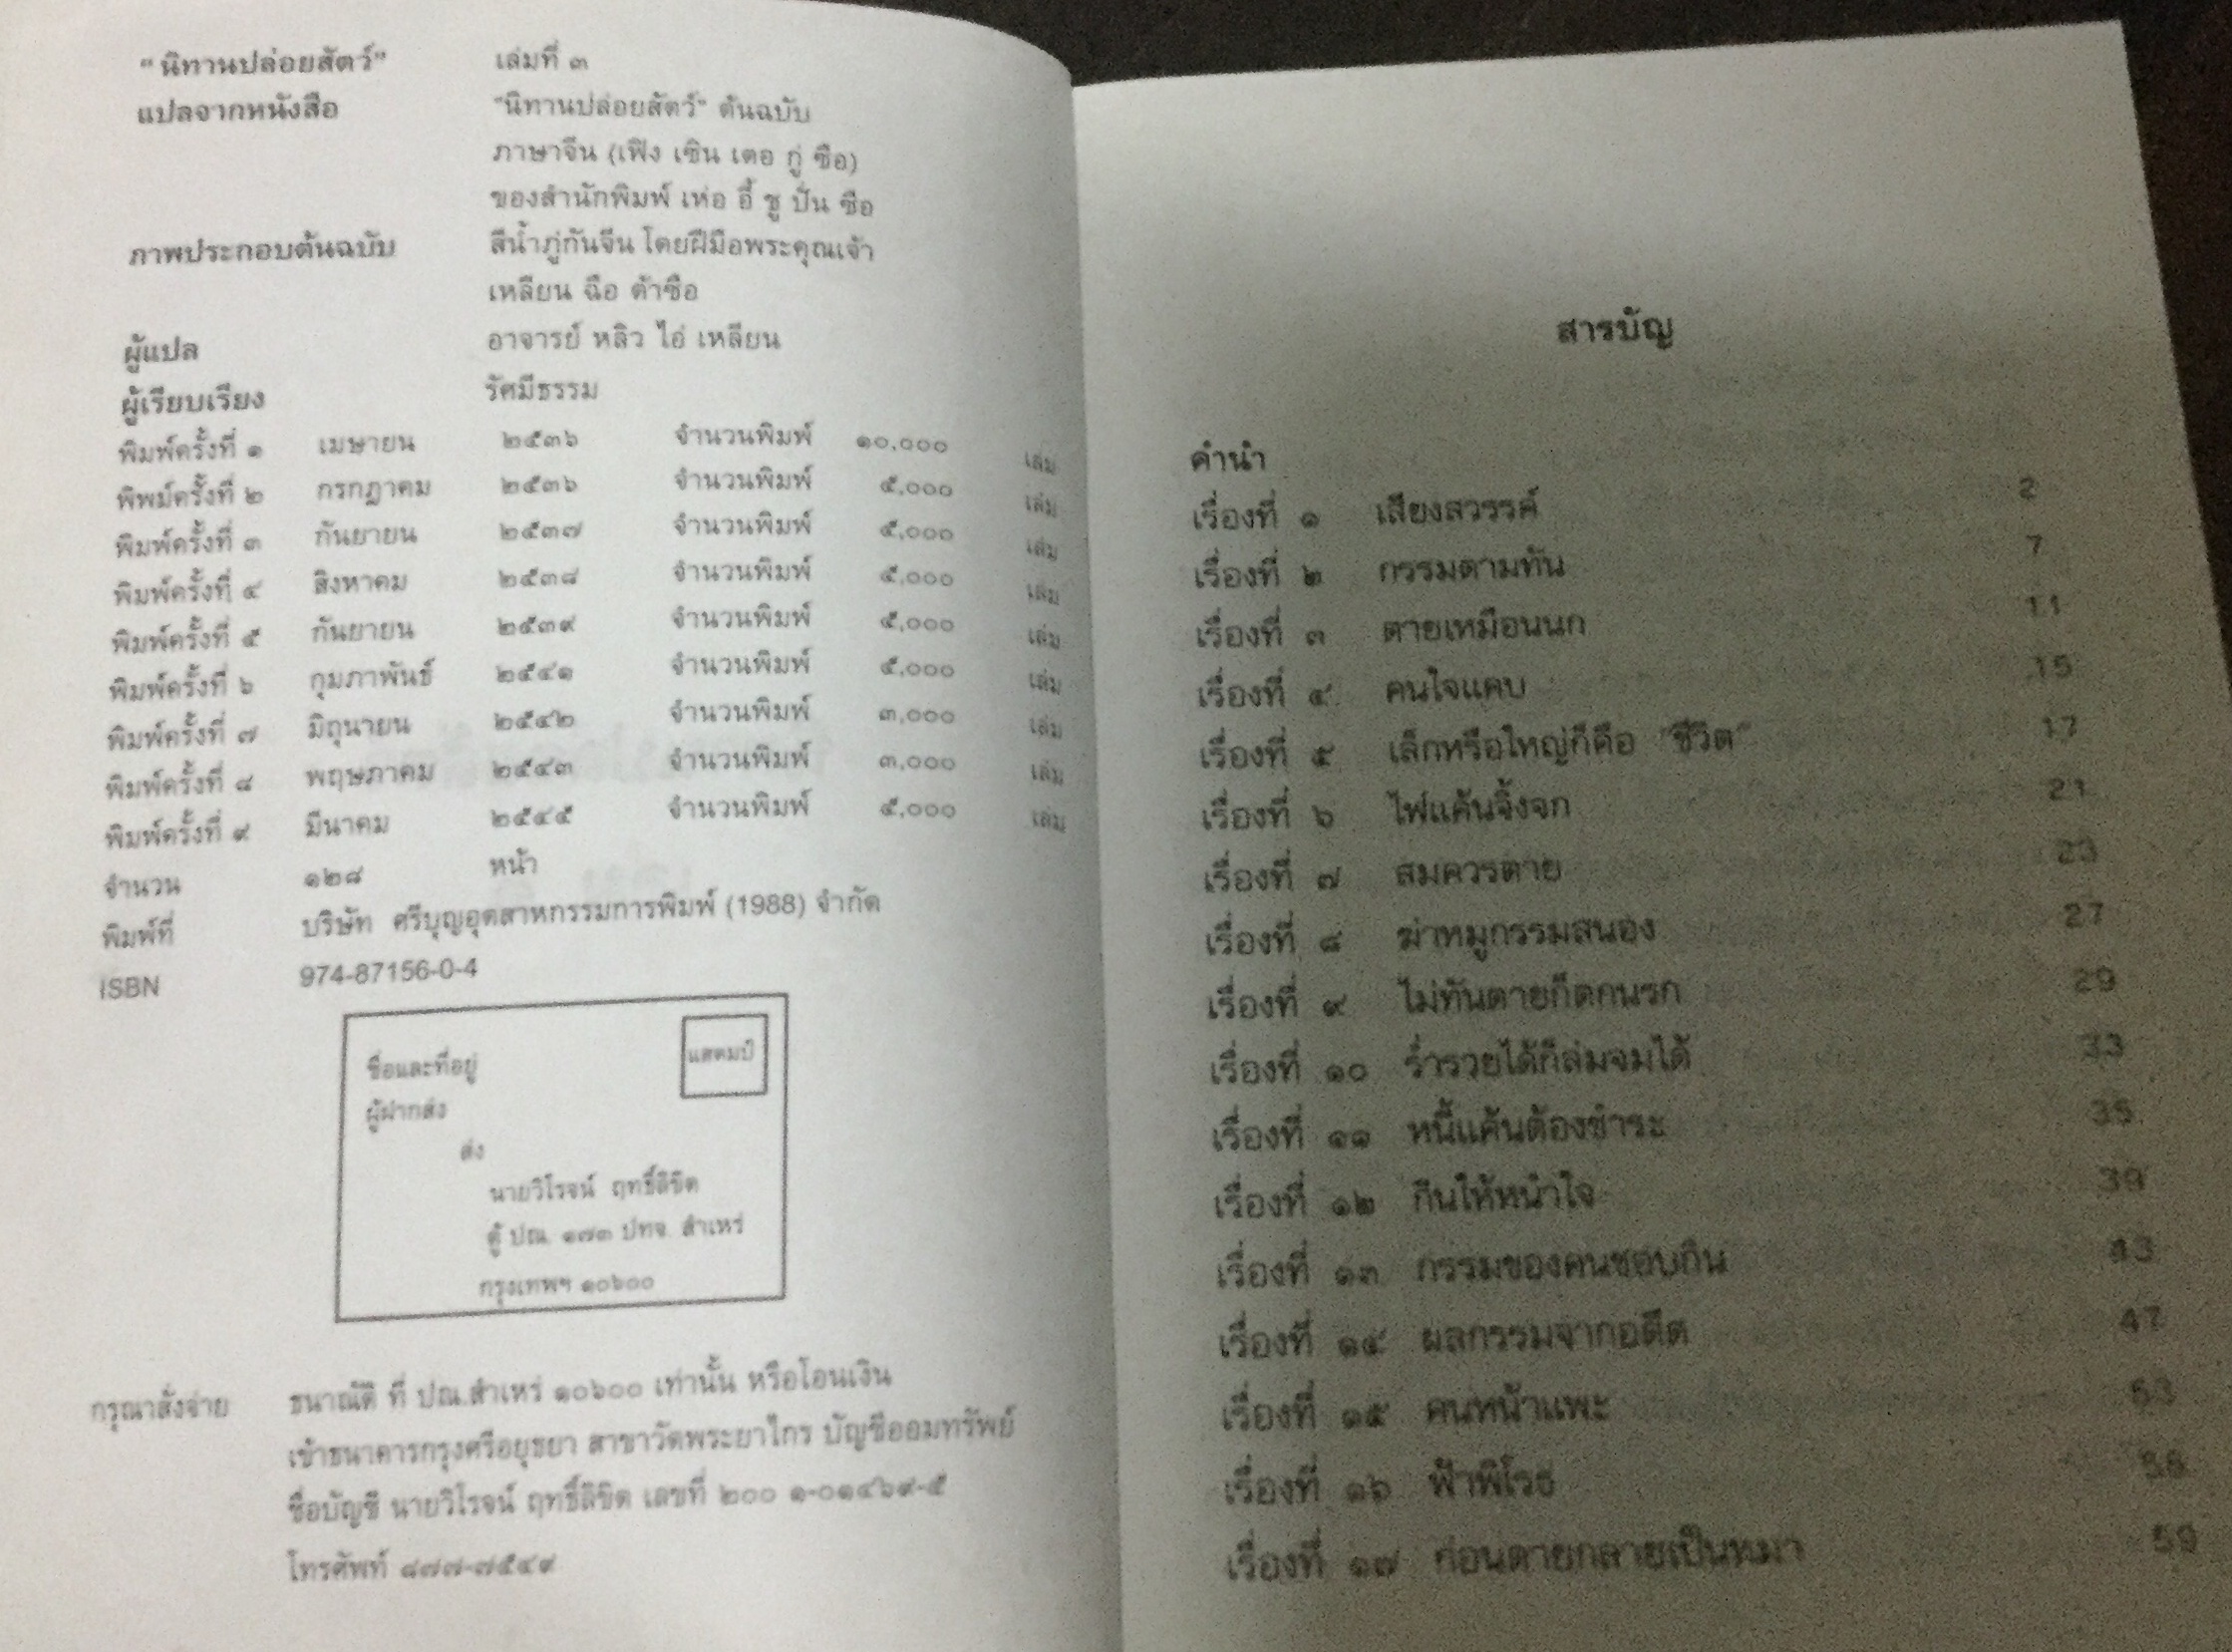 “นิทานปล่อยสัตว์” เล่มที่ ๓
แปลจากหนังสือ “นิทานปล่อยสัตว์” ต้นฉบับ
ภาษาจีน (เฟิง เซิน เตอ กู่ ซือ)
ของสำนักพิมพ์ เห่อ อี้ ชู ปั่น ซือ
ภาพประกอบต้นฉบับ สีน้ำภู่กันจีน โดยฝีมือพระคุณเจ้า
เหลียน ฉือ ต้าซือ
ผู้แปล อาจารย์ หลิว ไอ่ เหลียน
ผู้เรียบเรียง รัศมีธรรม
พิมพ์ครั้งที่ ๑ เมษายน ๒๕๓๖ จำนวนพิมพ์ ๑๐,๐๐๐ เล่ม
พิพม์ครั้งที่ ๒ กรกฎาคม ๒๕๓๖ จำนวนพิมพ์ ๕,๐๐๐ เล่ม
พิมพ์ครั้งที่ ๓ กันยายน ๒๕๓๗ จำนวนพิมพ์ ๕,๐๐๐ เล่ม
พิมพ์ครั้งที่ ๔ สิงหาคม ๒๕๓๘ จำนวนพิมพ์ ๕,๐๐๐ เล่ม
พิมพ์ครั้งที่ ๕ กันยายน ๒๕๓๙ จำนวนพิมพ์ ๕,๐๐๐ เล่ม
พิมพ์ครั้งที่ ๖ กุมภาพันธ์ ๒๕๔๑ จำนวนพิมพ์ ๕,๐๐๐ เล่ม
พิมพ์ครั้งที่ ๗ มิถุนายน ๒๕๔๒ จำนวนพิมพ์ ๓,๐๐๐ เล่ม
พิมพ์ครั้งที่ ๘ พฤษภาคม ๒๕๔๓ จำนวนพิมพ์ ๓,๐๐๐ เล่ม
พิมพ์ครั้งที่ ๙ มีนาคม ๒๕๔๕ จำนวนพิมพ์ ๕,๐๐๐ เล่ม
จำนวน ๑๒๘ หน้า
พิมพ์ที่ บริษัท ศรีบุญอุตสาหกรรมการพิมพ์ (1988) จำกัด
ISBN 974-87156-0-4
แสตมป์
ชื่อและที่อยู่
ผู้ฝากส่ง
ส่ง
นายวิโรจน์ ฤทธิ์ลิขิต
ตู้ ปณ. ๑๗๓ ปทจ. สำเหร่
กรุงเทพฯ ๑๐๖๐๐
กรุณาสั่งจ่าย ธนาณัติ ที่ ปณ.สำเหร่ ๑๐๖๐๐ เท่านั้น หรือโอนเงิน
เข้าธนาคารกรุงศรีอยุธยา สาขาวัดพระยาไกร บัญชีออมทรัพย์
ชื่อบัญชี นายวิโรจน์ ฤทธิ์ลิขิต เลขที่ ๒๐๐ ๑-๐๑๔๖๙-๕
โทรศัพท์ ๘๗๗-๗๕๔๙
สารบัญ
คำนำ
เรื่องที่ ๑ เสียงสวรรค์ 2
เรื่องที่ ๒ กรรมตามทัน 7
เรื่องที่ ๓ ตายเหมือนนก 11
เรื่องที่ ๔ คนใจแคบ 15
เรื่องที่ ๕ เล็กหรือใหญ่ก็คือ “ชีวิต” 17
เรื่องที่ ๖ ไฟแค้นจิ้งจก 21
เรื่องที่ ๗ สมควรตาย 23
เรื่องที่ ๘ ฆ่าหมูกรรมสนอง 27
เรื่องที่ ๙ ไม่ทันตายก็ตกนรก 29
เรื่องที่ ๑๐ ร่ำรวยได้ก็ล่มจมได้ 33
เรื่องที่ ๑๑ หนี้แค้นต้องชำระ 35
เรื่องที่ ๑๒ กินให้หนำใจ 39
เรื่องที่ ๑๓ กรรมของคนชอบกิน 43
เรื่องที่ ๑๔ ผลกรรมจากอดีต 47
เรื่องที่ ๑๕ คนหน้าแพะ 53
เรื่องที่ ๑๖ ฟ้าพิโรธ
เรื่องที่ ๑๗ ก่อนตายกลายเป็นหมา 59